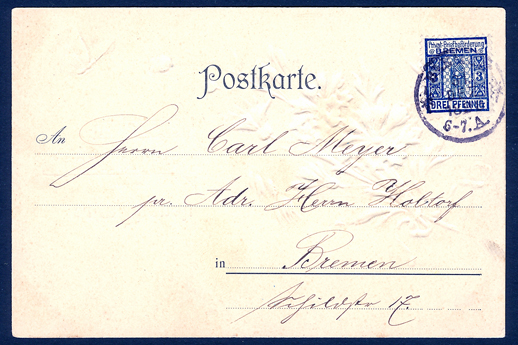 Privat-Briefbeförderung
BREMEN
3 3
DREI PFENNIG
6-7.A.
Postkarte.
An Herrn Carl Meyer
pr. Adr. Herrn Holstorf
in Bremen
Schildstr 17.